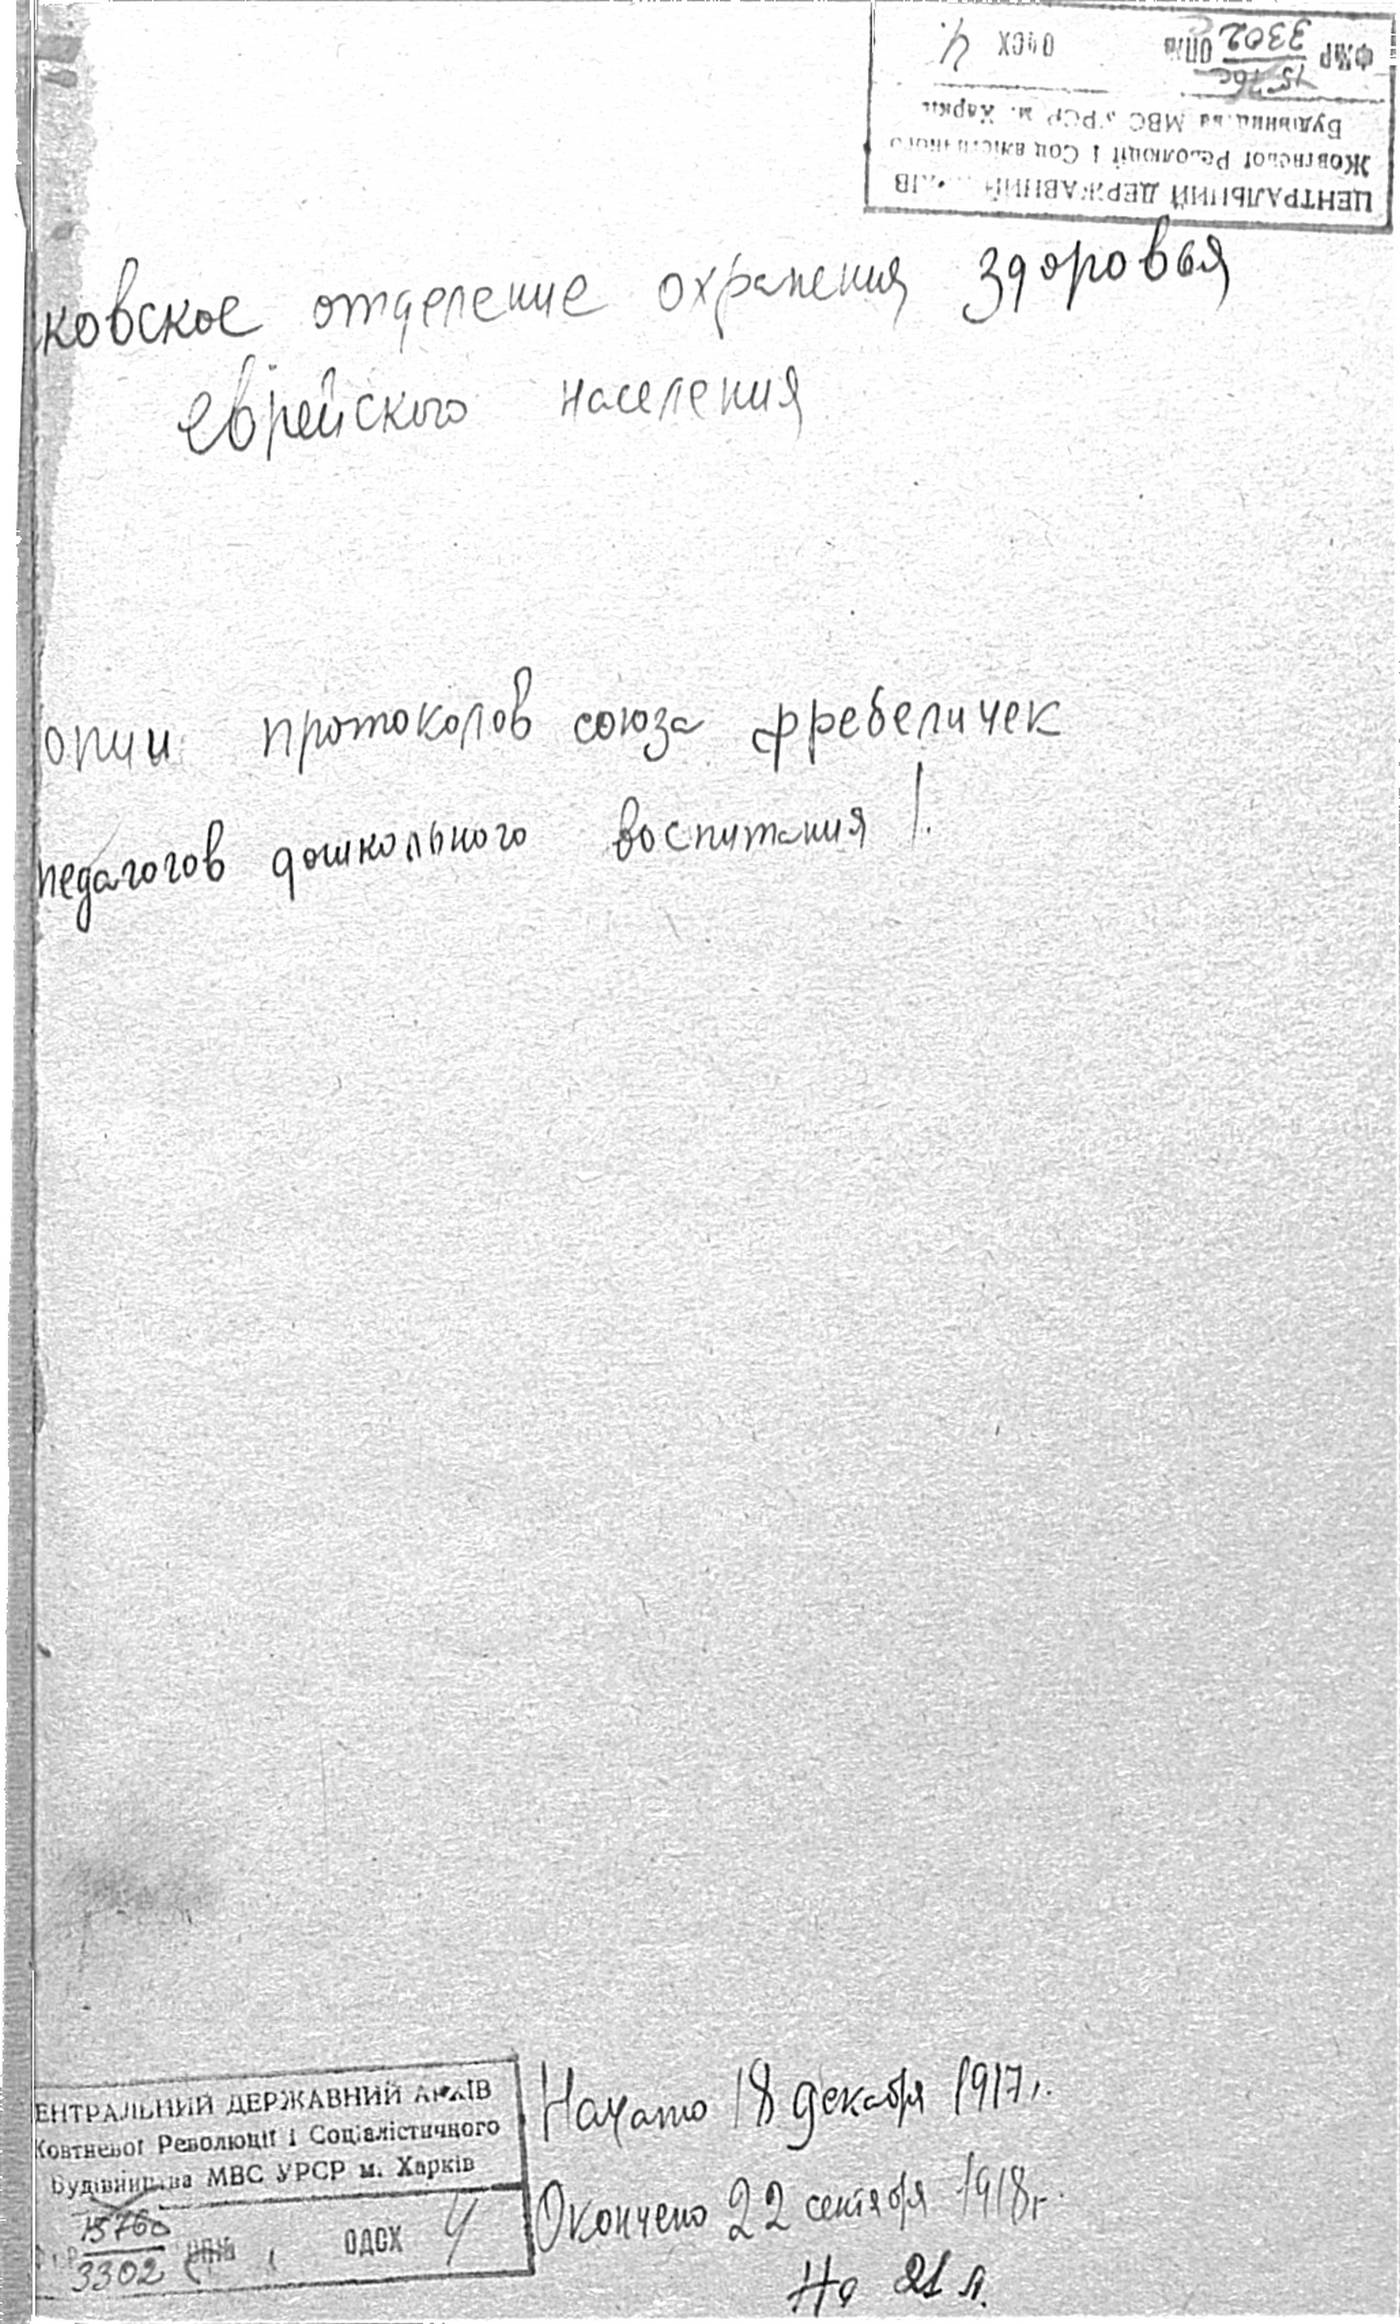 ЦЕНТРАЛЬНИЙ ДЕРЖАВНИЙ
Жовтневої Революції і Соціалістичного
Будівництва МВС УРСР м. Харків
ФМР 3302 ОП№ ОДСХ 4
ковское отделение охранения здоровья
еврейского населения
опии протоколов союза фребеличек
педагогов дошкольного воспитания /.
ЕНТРАЛЬНИЙ ДЕРЖАВНИЙ АРХІВ
Жовтневої Революції і Соціалістичного
Будівництва МВС УРСР м. Харків
15760
3302 ОП№ 1 ОДСХ 4
Начато 18 декабря 1917г.
Окончено 22 сентября 1918г.
На 21 л.